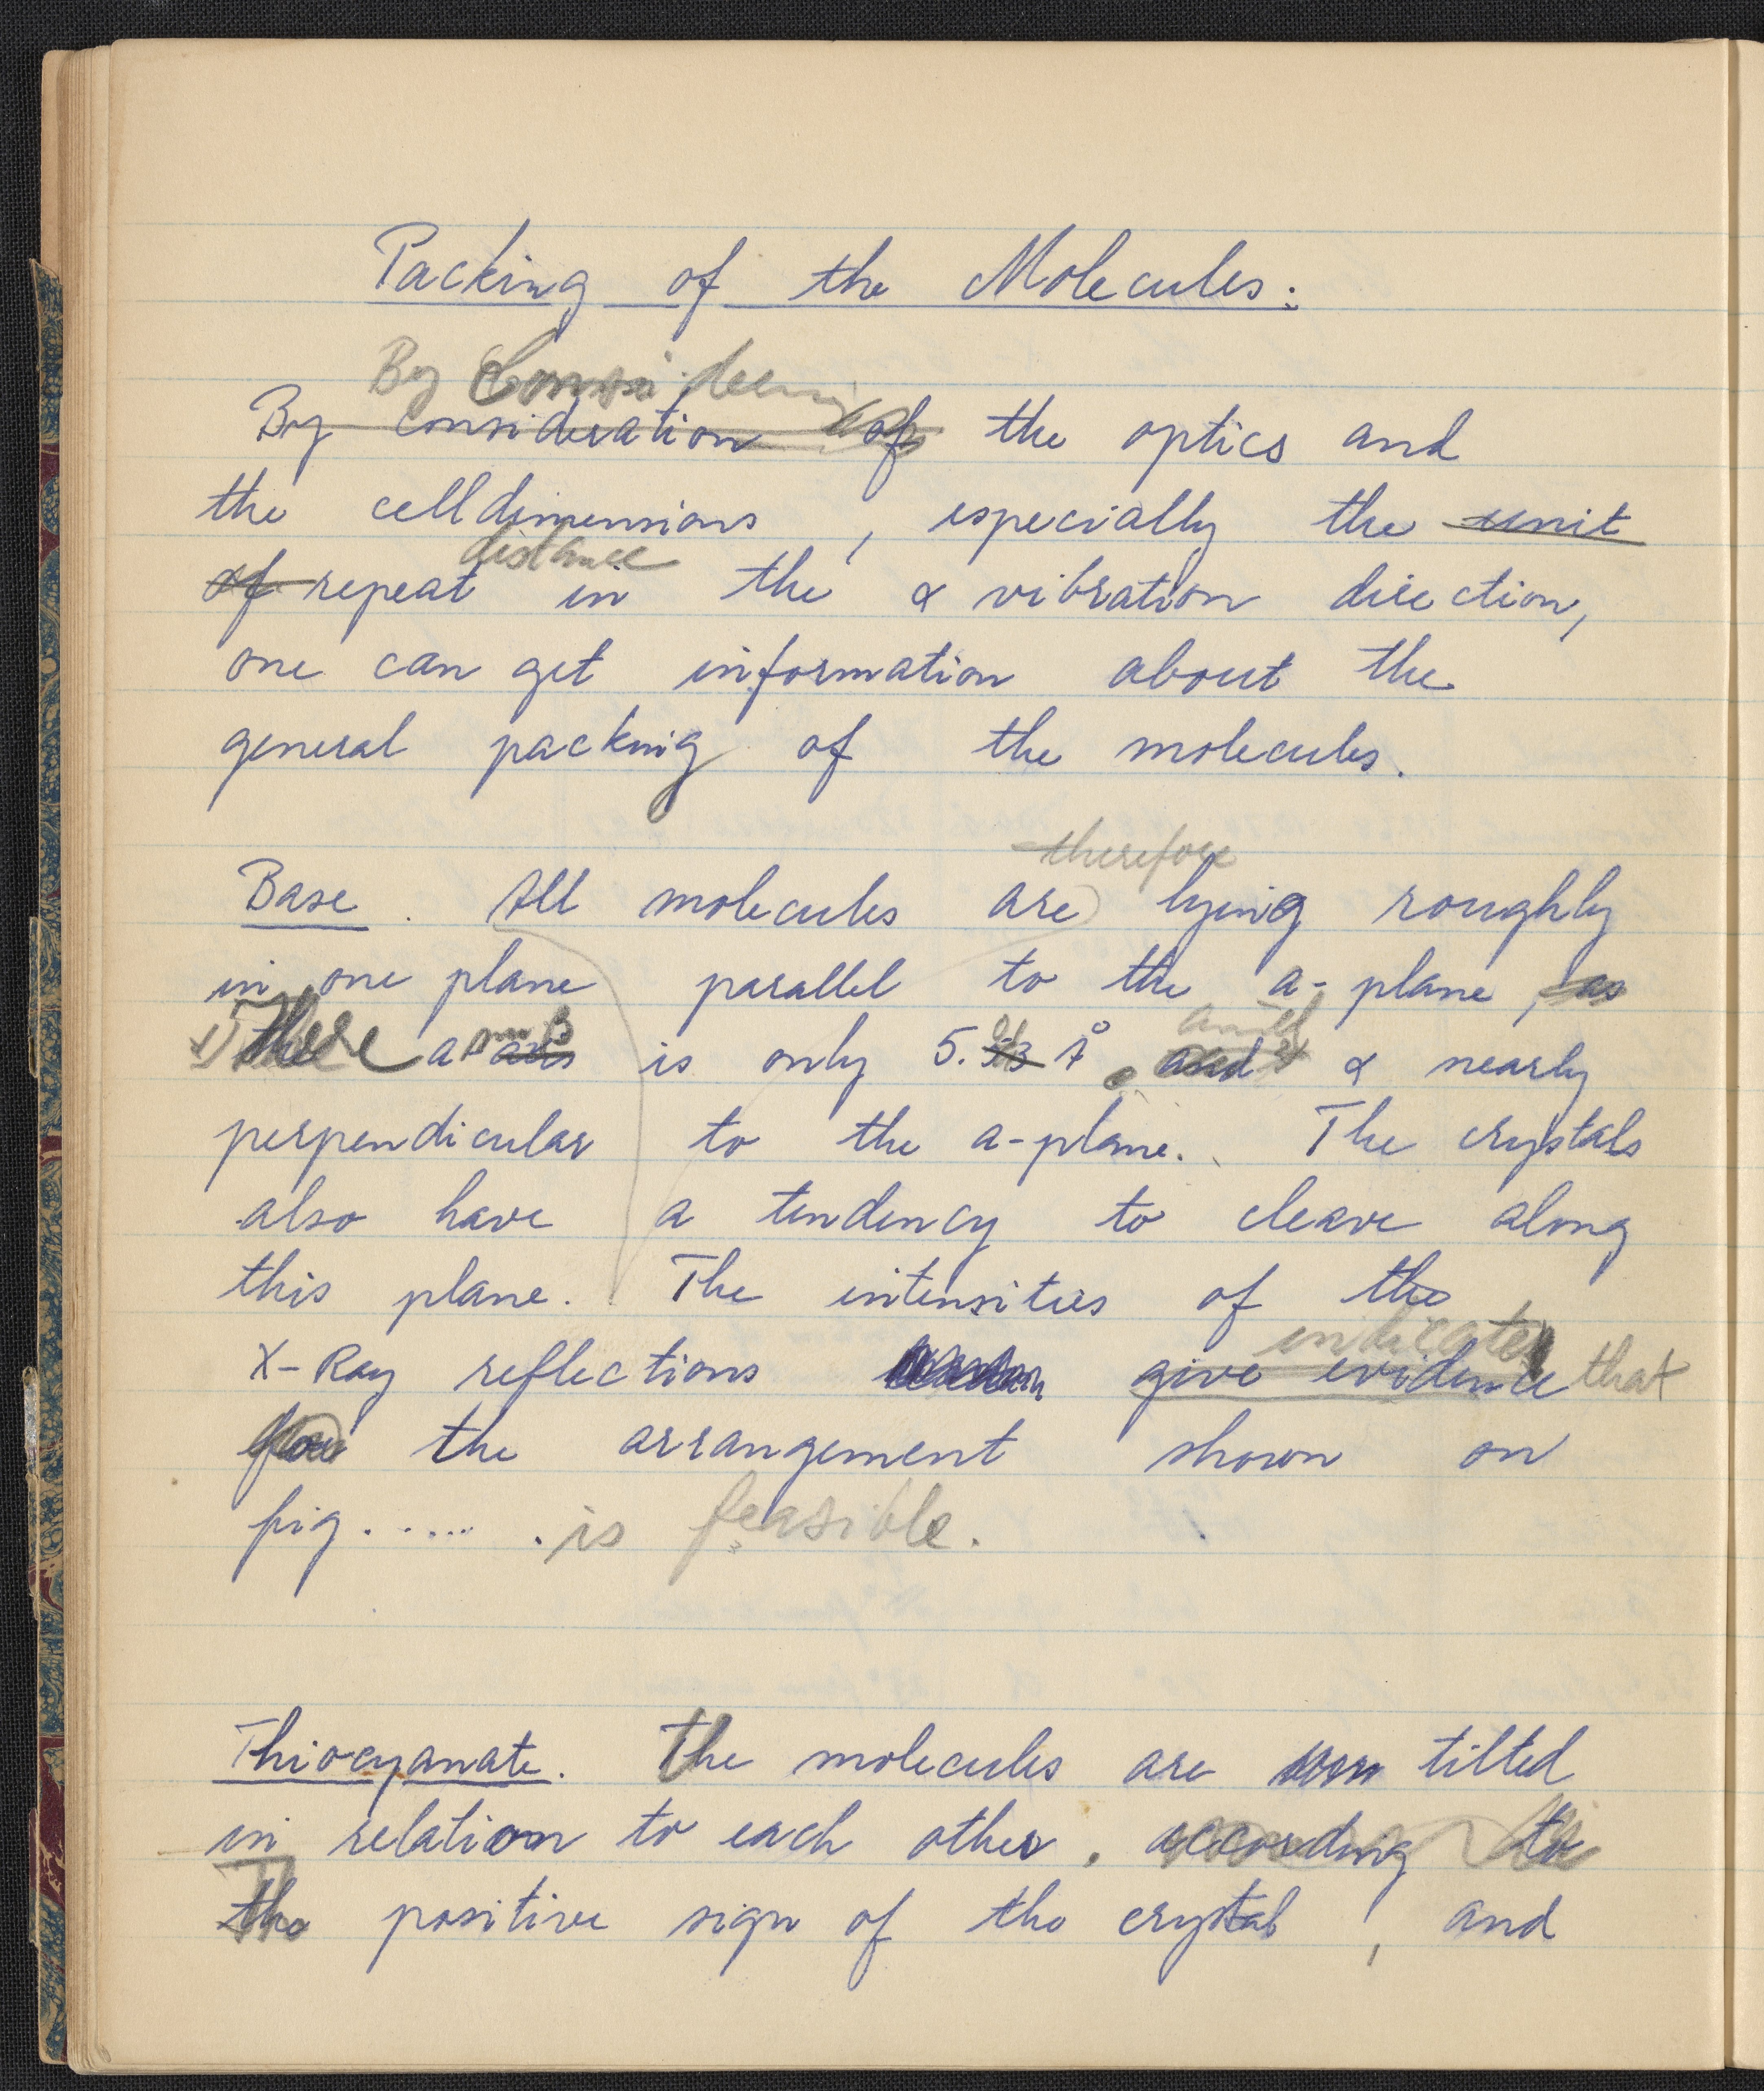 Packing of the Molecules:
By Considering
By consideration of the optics and
the celldimensions , especially the unit
distance
of repeat in the α vibration direction,
one can get information about the
general packing of the molecules.
therefore
Base . All molecules are lying roughly
in one plane parallel to the a-plane, as
There a axis is only 5.33 Å and α nearly
perpendicular to the a-plane. The crystals
also have a tendency to cleave along
this plane. The intensities of the
indicate
X-Ray reflections give evidence that
for the arrangement shown on
fig. ..... . is feasible.
Thiocyanate. The molecules are tilted
in relation to each other . according to
The positive sign of the crystal , and